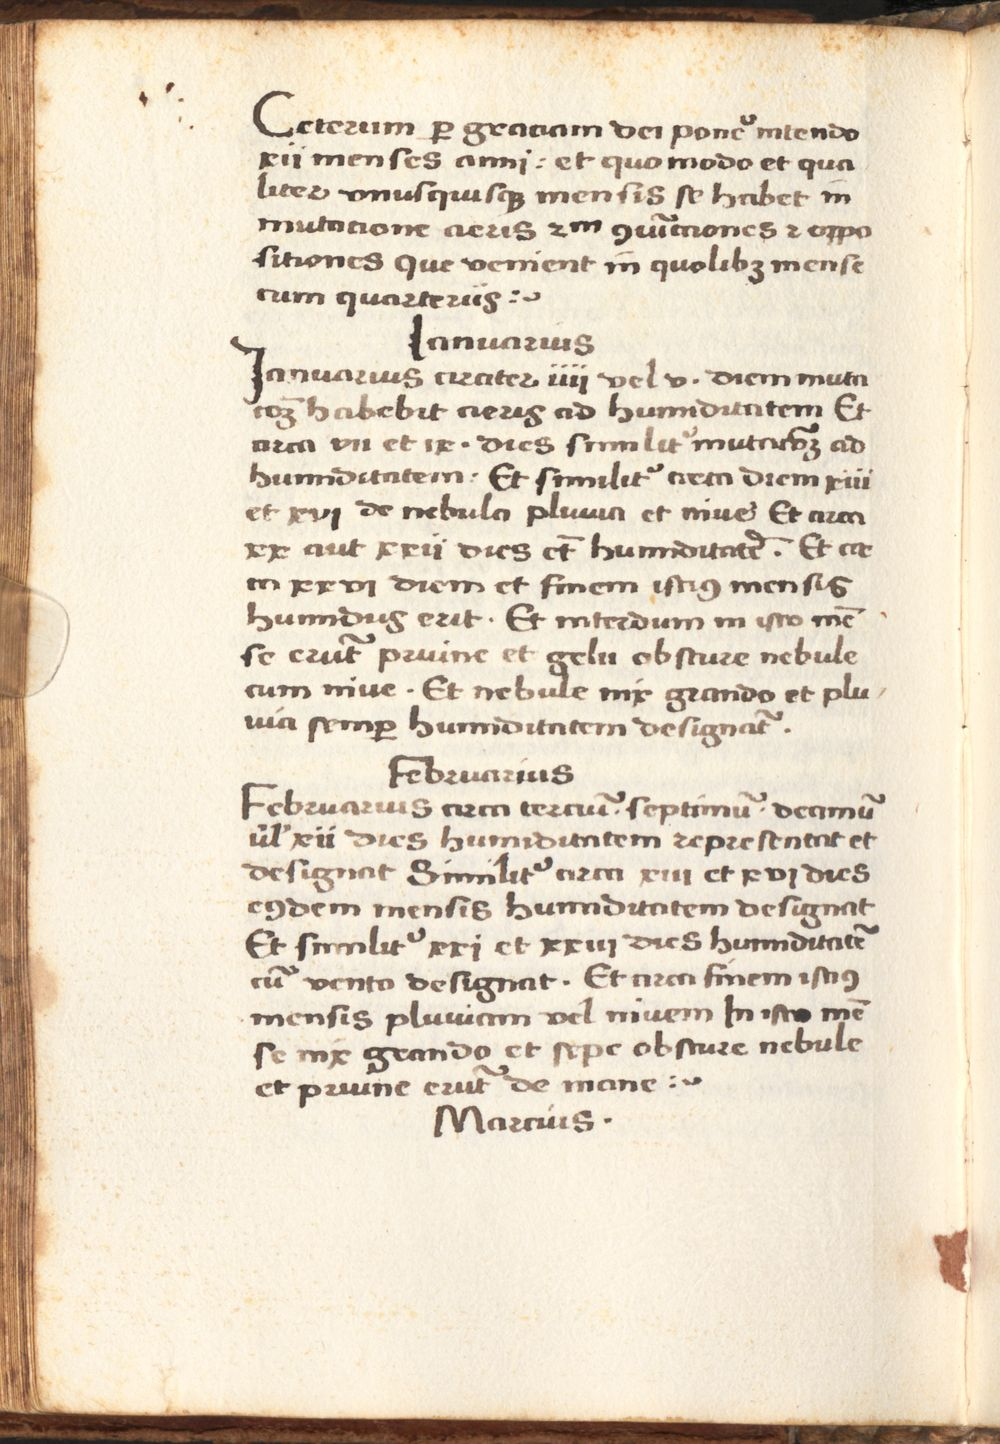 Ceterum ꝑ graciam dei ponẽ intendo
xii menses anni : et quomodo et qua
liter vnusquisqꝫ mensis se habet in
mutacione aeris ẜm ꝯiũctiones ꝛ oppo
sitiones que venient in quolibꝫ mense
cum quarteriis :~
Ianuarius
Ianuarius circiter iiii vel v. diem muta
coꝫ habebit aeris ad humiditatem Et
circa vii et ix. dies similitꝰ mutacoꝫ ad
humiditatem : Et similitꝰ circa diem xiii
et xvi de nebula pluvia et nive Et circa
xx aut xxii dies et̃ humiditatẽ. Et cir
ca xxvi diem et finem istiꝯ mensis
humidus erit. Et interdum in isto mẽ
se erũt pruine et gelu obscure nebule
cum nive. Et nebule nix grando et plu
uia semꝑ humiditatem designãt.
Februarius
Februarius circa terciũ. septimũ. decimũ
ul̃ xii dies humiditatem representat et
designat Similitꝰ circa xiii et xvi dies
eꝯdem mensis humiditatem designat
Et similitꝰ xxi et xxiii dies humiditatẽ
cũ vento designat. Et circa finem istiꝯ
mensis pluuiam vel nivem In isto mẽ
se nix grando et sepe obscure nebule
et pruine erũt de mane :~
Marcius.